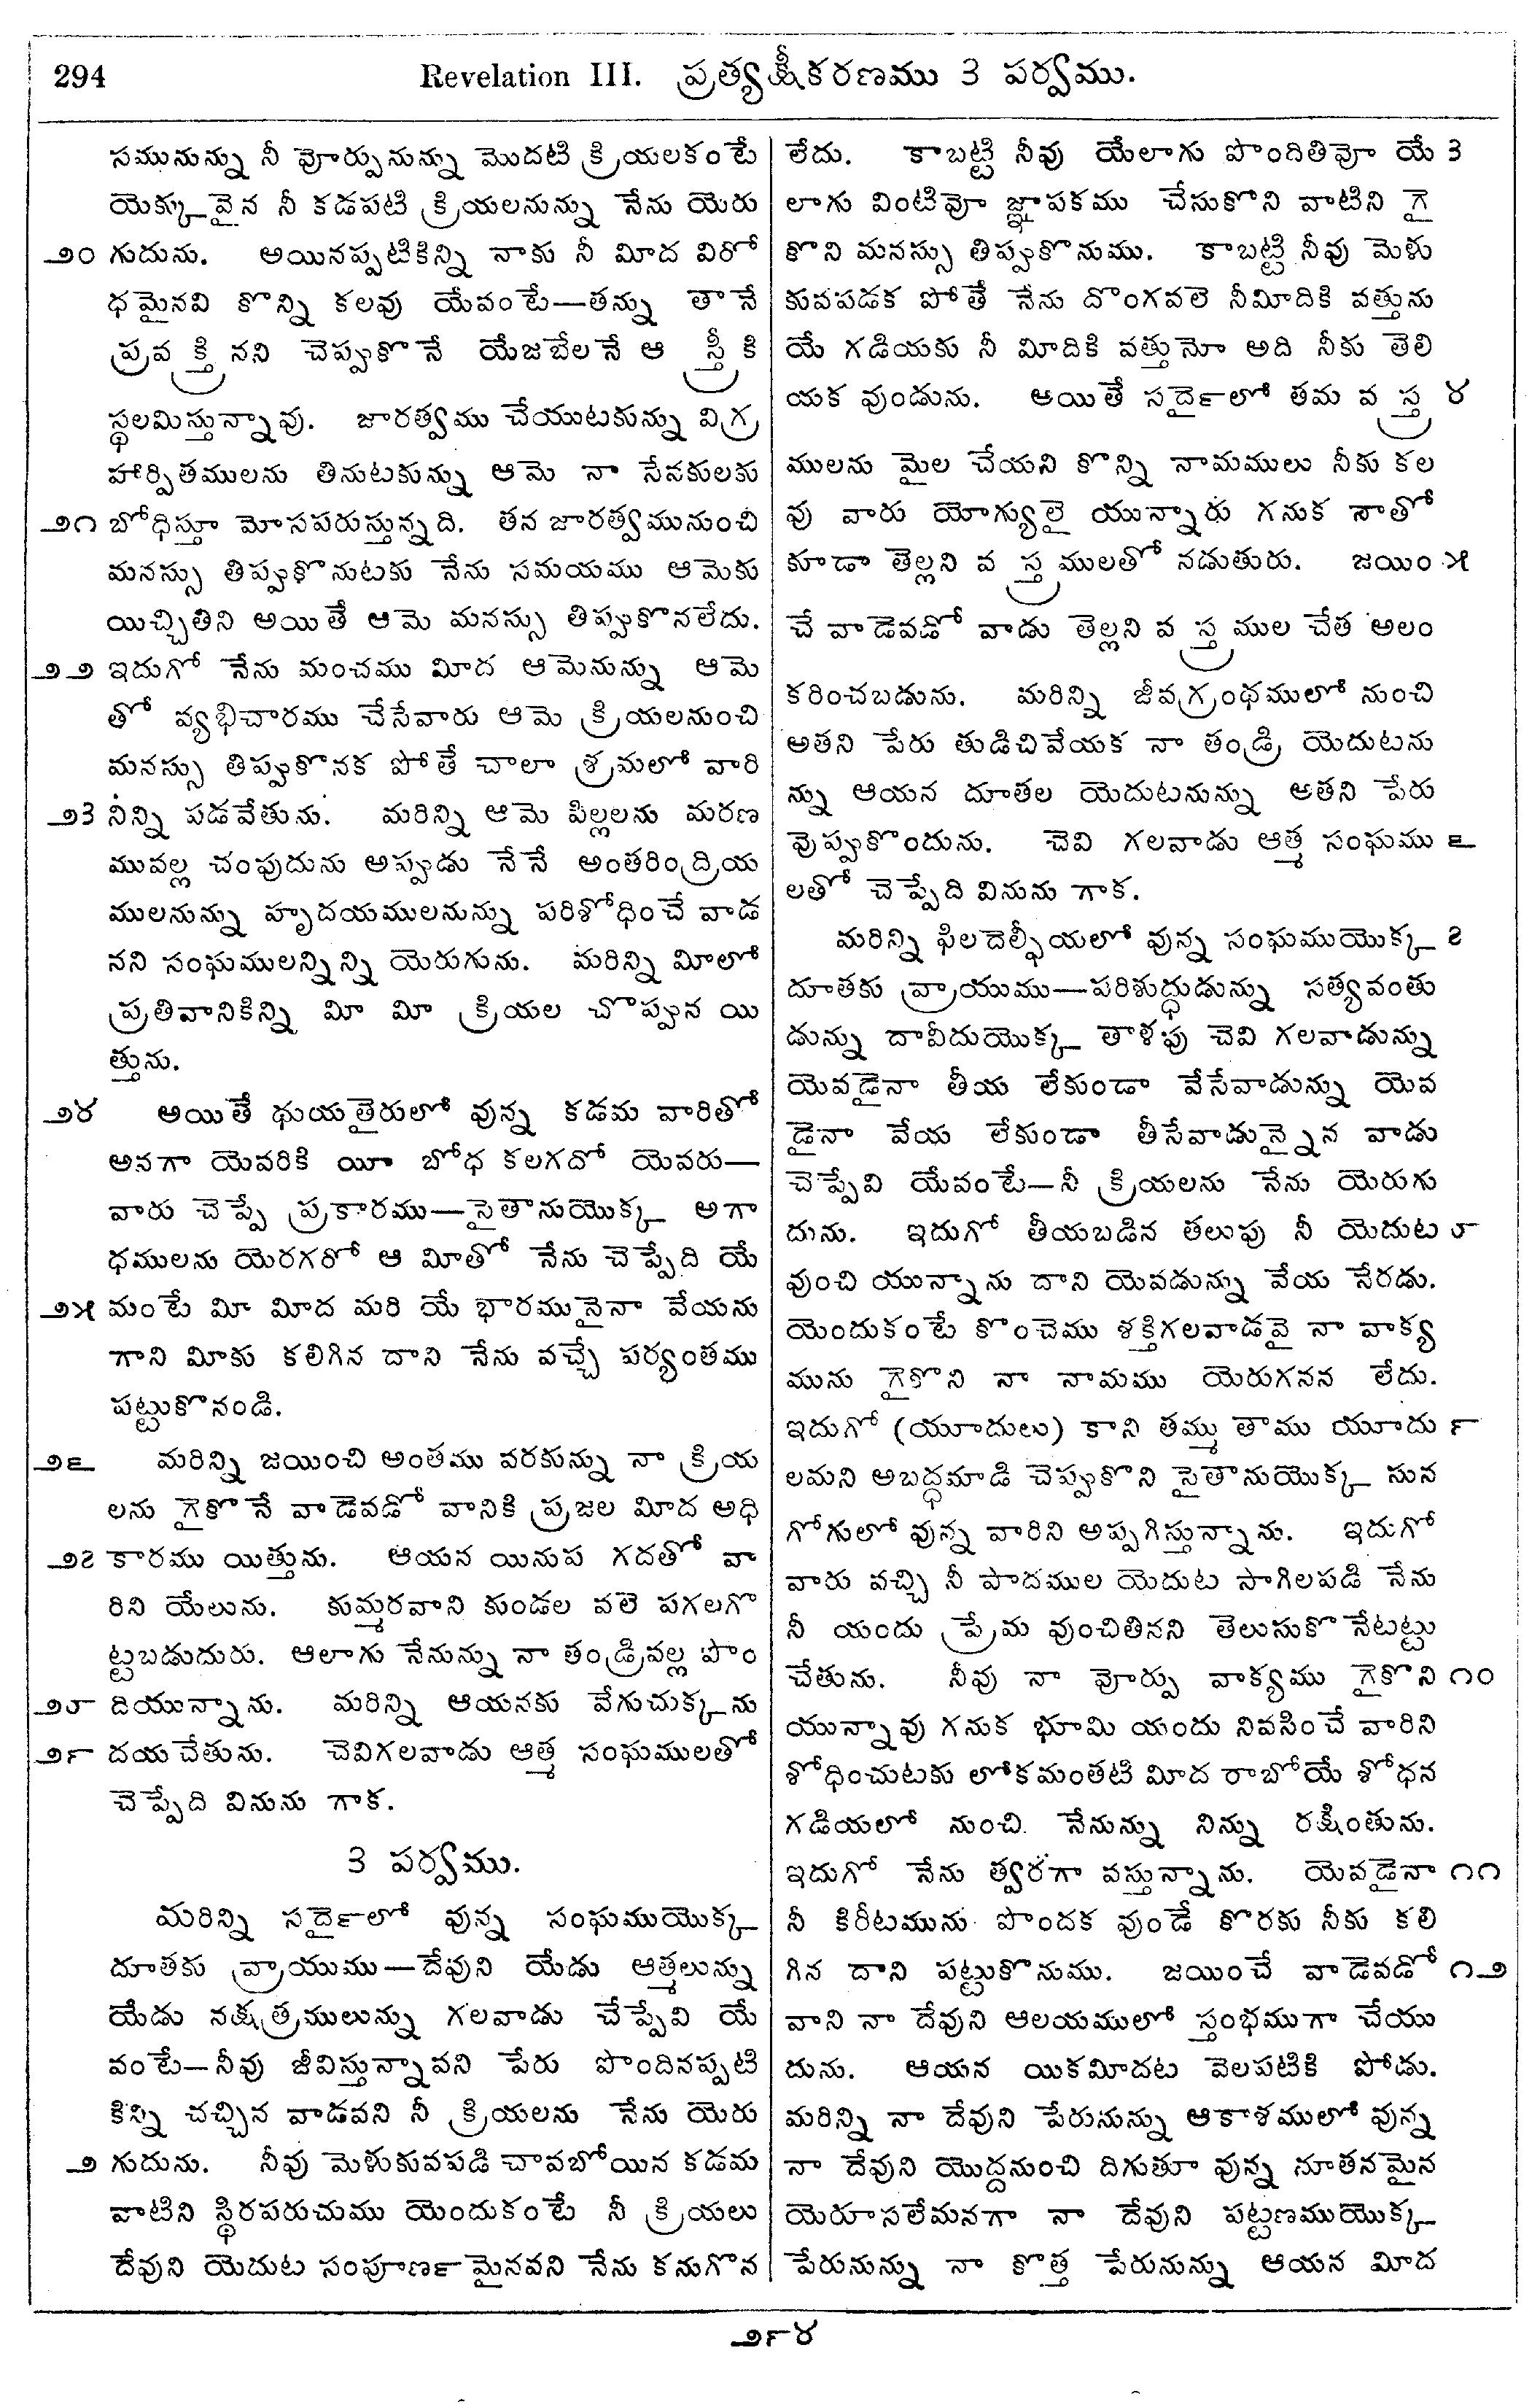 294 Revelation III. ప్రత్యక్షీకరణము 3 పర్వము.
సమునున్ను నీ వోర్పునున్ను మొదటి క్రియలకంటే
యెక్కువైన నీ కడపటి క్రియలనున్ను నేను యెరు
౨౦ గుదును. అయినప్పటికిన్ని నాకు నీ మీద విరో
ధమైనవి కొన్ని కలవు యేవంటే—తన్ను తానే
ప్రవక్త్రినని చెప్పుకొనే యేజబేలనే ఆ స్త్రీకి
స్థలమిస్తున్నావు. జారత్వము చేయుటకున్ను విగ్ర
హార్పితములను తినుటకున్ను ఆమె నా సేవకులకు
౨౧ బోధిస్తూ మోసపరుస్తున్నది. తన జారత్వమునుంచి
మనస్సు తిప్పుకొనుటకు నేను సమయము ఆమెకు
యిచ్చితిని అయితే ఆమె మనస్సు తిప్పుకొనలేదు.
౨౨ ఇదుగో నేను మంచము మీద ఆమెనున్ను ఆమె
తో వ్యభిచారము చేసేవారు ఆమె క్రియలనుంచి
మనస్సు తిప్పుకొనక పోతే చాలా శ్రమలో వారి
౨3 నిన్ని పడవేతును. మరిన్ని ఆమె పిల్లలను మరణ
మువల్ల చంపుదును అప్పుడు నేనే అంతరింద్రియ
ములనున్ను హృదయములనున్ను పరిశోధించే వాడ
నని సంఘములన్నిన్ని యెరుగును. మరిన్ని మీలో
ప్రతివానికిన్ని మీ మీ క్రియల చొప్పున యి
త్తును.
౨౪ అయితే థుయతైరులో వున్న కడమ వారితో
అనగా యెవరికి యీ బోధ కలగదో యెవరు—
వారు చెప్పే ప్రకారము—సైతానుయొక్క అగా
ధములను యెరగరో ఆ మీతో నేను చెప్పేది యే
౨౫ మంటే మీ మీద మరి యే భారమునైనా వేయను
గాని మీకు కలిగిన దాని నేను వచ్చే పర్యంతము
పట్టుకొనండి.
౨౬ మరిన్ని జయించి అంతము వరకున్ను నా క్రియ
లను గైకొనే వాడెవడో వానికి ప్రజల మీద అధి
౨౭ కారము యిత్తును. ఆయన యినుప గదతో వా
రిని యేలును. కుమ్మరవాని కుండల వలె పగలగొ
ట్టబడుదురు. ఆలాగు నేనున్ను నా తండ్రివల్ల పొం
౨౮ దియున్నాను. మరిన్ని ఆయనకు వేగుచుక్కను
౨౯ దయచేతును. చెవిగలవాడు ఆత్మ సంఘములతో
చెప్పేది వినును గాక.
3 పర్వము.
మరిన్ని సదైకాలో వున్న సంఘముయొక్క
దూతకు వ్రాయుము—దేవుని యేడు ఆత్మలున్ను
యేడు నక్షత్రములున్ను గలవాడు చేప్పేవి యే
వంటే—నీవు జీవిస్తున్నావని పేరు పొందినప్పటి
కిన్ని చచ్చిన వాడవని నీ క్రియలను నేను యెరు
౨ గుదును. నీవు మెళుకువపడి చావబోయిన కడమ
వాటిని స్థిరపరుచుము యెందుకంటే నీ క్రియలు
దేవుని యెదుట సంపూణ౯మైనవని నేను కనుగొన
లేదు. కాబట్టి నీవు యేలాగు పొందితివో యే 3
లాగు వింటివో జ్ఞాపకము చేసుకొని వాటిని గై
కొని మనస్సు తిప్పుకొనుము. కాబట్టి నీవు మెళు
కువపడక పోతే నేను దొంగవలె నీమీదికి వత్తును
యే గడియకు నీ మీదికి వత్తునో అది నీకు తెలి
యక వుండును. అయితే సదై౯లో తమ వస్త్ర ౪
ములను మైల చేయని కొన్ని నామములు నీకు కల
వు వారు యోగ్యులై యున్నారు గనుక నాతో
కూడా తెల్లని వస్త్రములతో నడుతురు. జయిం ౫
చే వాడెవడో వాడు తెల్లని వస్త్రముల చేత అలం
కరించబడును. మరిన్ని జీవగ్రంథములో నుంచి
అతని పేరు తుడిచివేయక నా తండ్రి యెదుటను
న్ను ఆయన దూతల యెదుటనున్ను అతని పేరు
వొప్పుకొందును. చెవి గలవాడు ఆత్మ సంఘము ౬
లతో చెప్పేది వినును గాక.
మరిన్ని ఫిలదెల్ఫీయలో వున్న సంఘముయొక్క ౭
దూతకు వ్రాయుము—పరిశుద్ధుడున్ను సత్యవంతు
డున్ను దావీదుయొక్క తాళపు చెవి గలవాడున్ను
యెవడైనా తీయ లేకుండా వేసేవాడున్ను యెవ
డైనా వేయ లేకుండా తీసేవాడున్నైన వాడు
చెప్పేవి యేవంటే—నీ క్రియలను నేను యెరుగు
దును. ఇదుగో తీయబడిన తలుపు నీ యెదుట ౮
వుంచి యున్నాను దాని యెవడున్ను వేయ నేరడు.
యెందుకంటే కొంచెము శక్తిగలవాడవై నా వాక్య
మును గైకొని నా నామము యెరుగనన లేదు.
ఇదుగో (యూదులు) కాని తమ్ము తాము యూదు ౯
లమని అబద్ధమాడి చెప్పుకొని సైతానుయొక్క సున
గోగులో వున్న వారిని అప్పగిస్తున్నాను. ఇదుగో
వారు వచ్చి నీ పాదముల యెదుట సాగిలపడి నేను
నీ యందు ప్రేమ వుంచితినని తెలుసుకొనేటట్టు
చేతును. నీవు నా వోర్పు వాక్యము గైకొని ౧౦
యున్నావు గనుక భూమి యందు నివసించే వారిని
శోధించుటకు లోకమంతటి మీద రాబోయే శోధన
గడియలో నుంచి నేనున్ను నిన్ను రక్షింతును.
ఇదుగో నేను త్వరగా వస్తున్నాను. యెవడైనా ౧౧
నీ కిరీటమును పొందక వుండే కొరకు నీకు కలి
గిన దాని పట్టుకొనుము. జయించే వాడెవడో ౧౨
వాని నా దేవుని ఆలయములో స్తంభముగా చేయు
దును. ఆయన యికమీదట వెలపటికి పోడు.
మరిన్ని నా దేవుని పేరునున్ను ఆకాశములో వున్న
నా దేవుని యొద్దనుంచి దిగుతూ వున్న నూతనమైన
యెరూసలేమనగా నా దేవుని పట్టణముయొక్క
పేరునున్ను నా కొత్త పేరునున్ను ఆయన మీద
౨౯౪